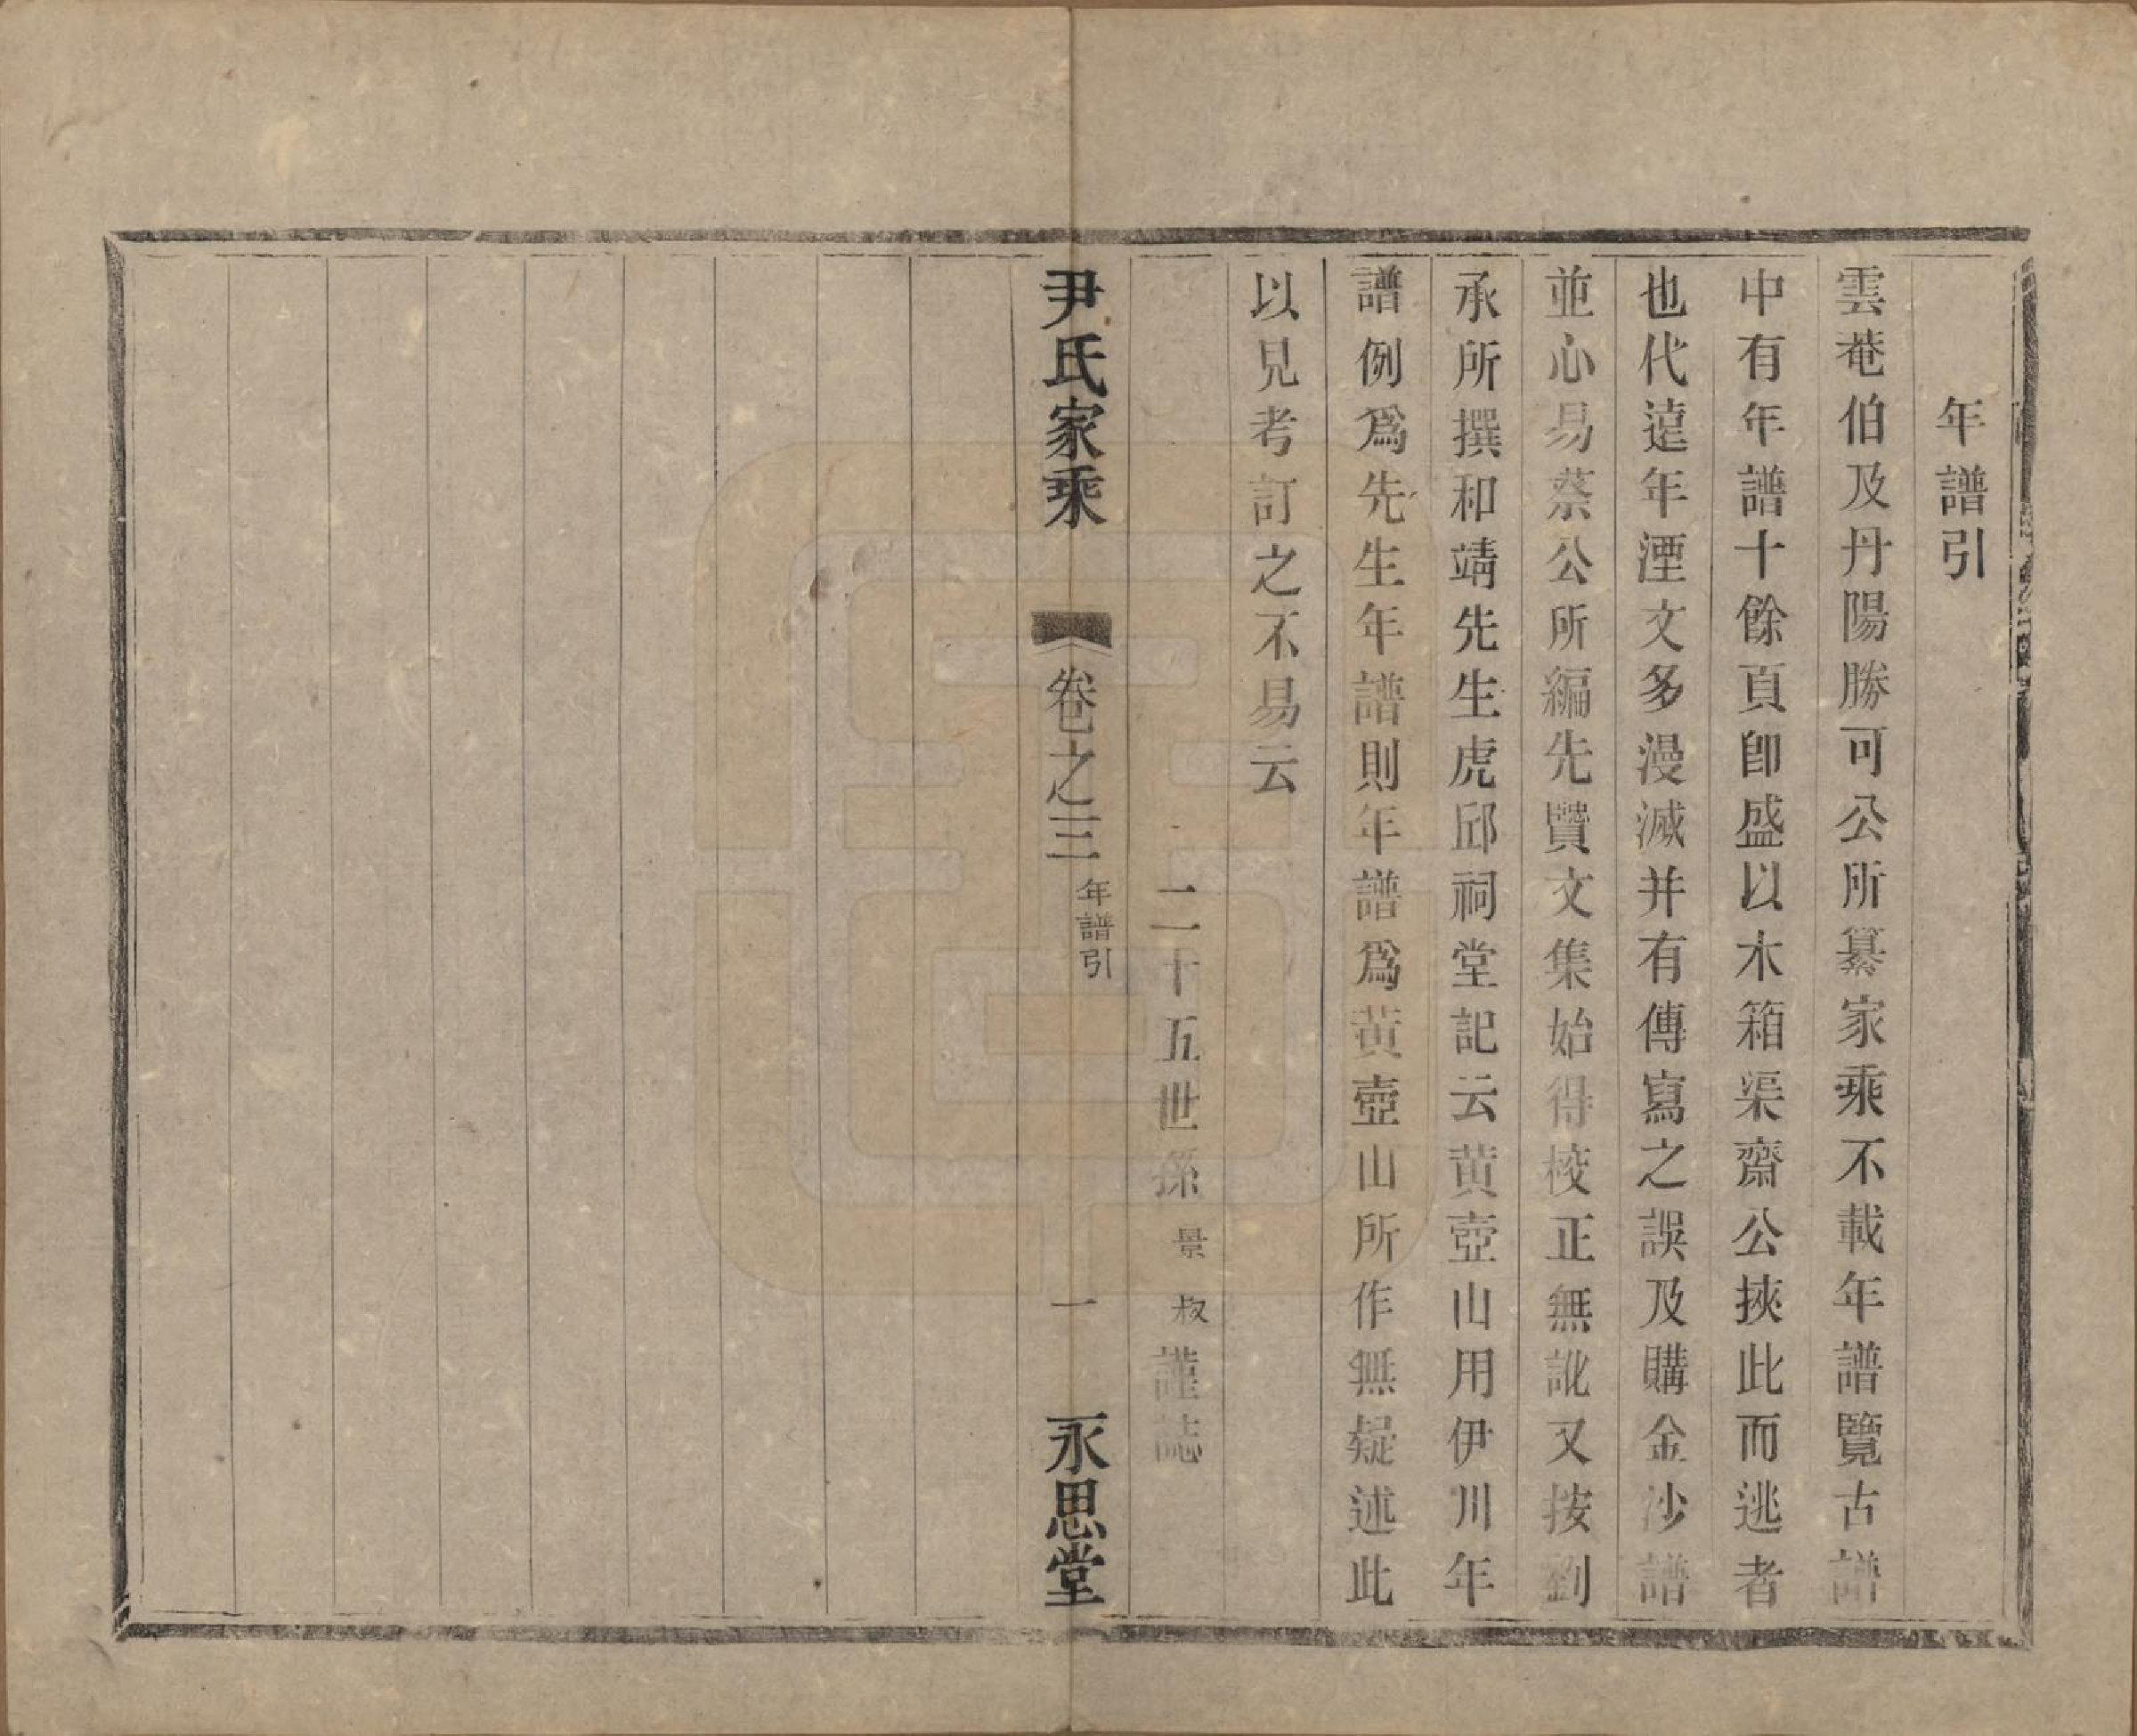 年譜引
雲菴伯及丹陽勝可公所纂家乘不載年譜覽古譜
中有年譜十餘頁卽盛以木箱渠齋公挾此而逃者
也代遠年湮文多漫滅并有傳寫之誤及購金沙譜
並心易蔡公所編先賢文集始得校正無訛又按劉
承所撰和靖先生虎邱祠堂記云黃壺山用伊川年
譜例爲先生年譜則年譜爲黃壺山所作無疑述此
以見考訂之不易云
二十五世孫景叔謹誌
尹氏家乘
卷之三
年譜引
一
永思堂